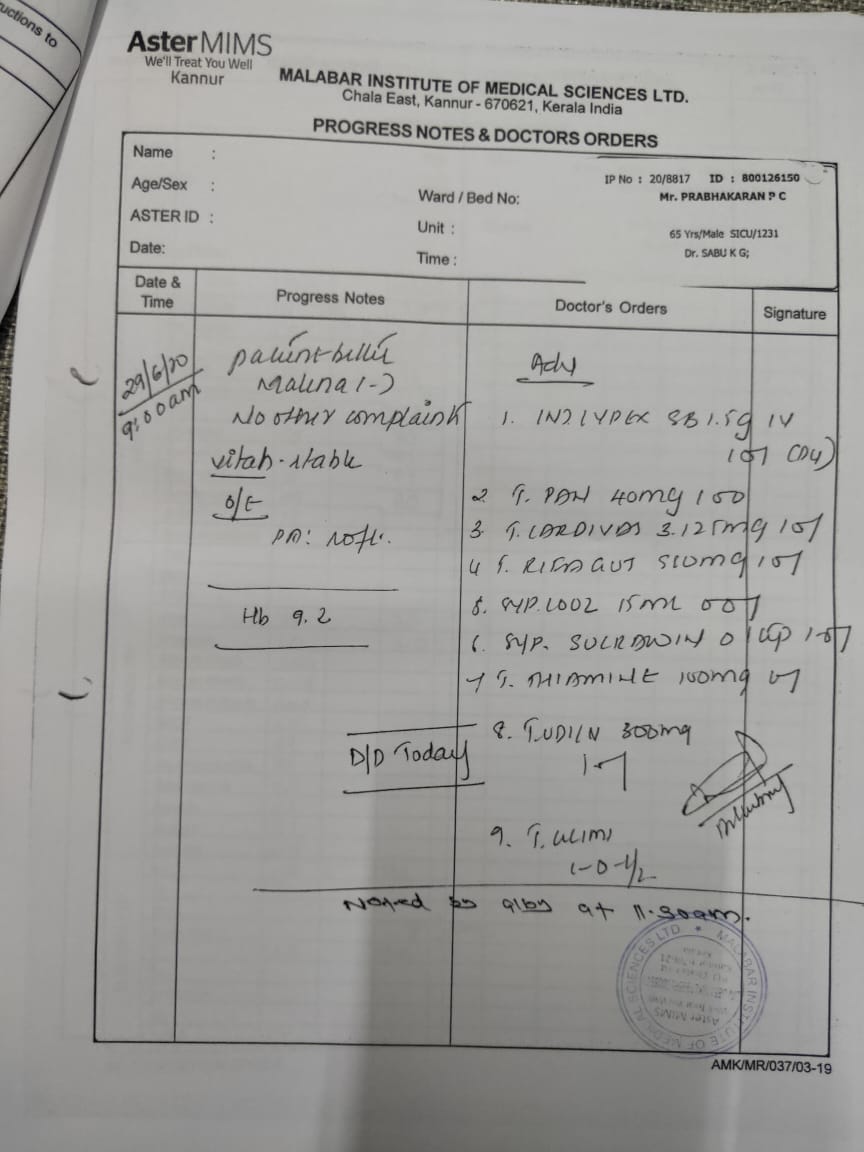 uctions to
Aster MIMS
We'll Treat You Well
Kannur
MALABAR INSTITUTE OF MEDICAL SCIENCES LTD.
Chala East, Kannur - 670621, Kerala India
PROGRESS NOTES & DOCTORS ORDERS
Name :
Age/Sex :
ASTER ID :
Date:
Ward / Bed No:
Unit :
Time :
IP No : 20/8817 ID : 800126150
Mr. PRABHAKARAN P C
65 Yrs/Male SICU/1231
Dr. SABU K G;
Date & Time
Progress Notes
Doctor's Orders
Signature
29/6/20
9:00am
patient better
Malena (-)
No other complaints
vitals - stable
O/E
PA: soft.
Hb 9.2
D/D Today
Adv
1. INJ ZYDEX SB 1.5g IV
101 (D4)
2. T. PAN 40mg 100
3. T. CARDIVAS 3.125mg 101
4 T. RIFAGUT 550mg 101
5. SYP. LOOZ 15ml 001
6. SYP. SUCRAWIN O 1-01
7 T. THIAMINE 100mg
8. T. UDILN 300mg
1-1
9. T.
1-0-1/2
Noted by alby at 11.30am.
MALABAR INSTITUTE OF MEDICAL SCIENCES LTD
Aster MIMS
AMK/MR/037/03-19